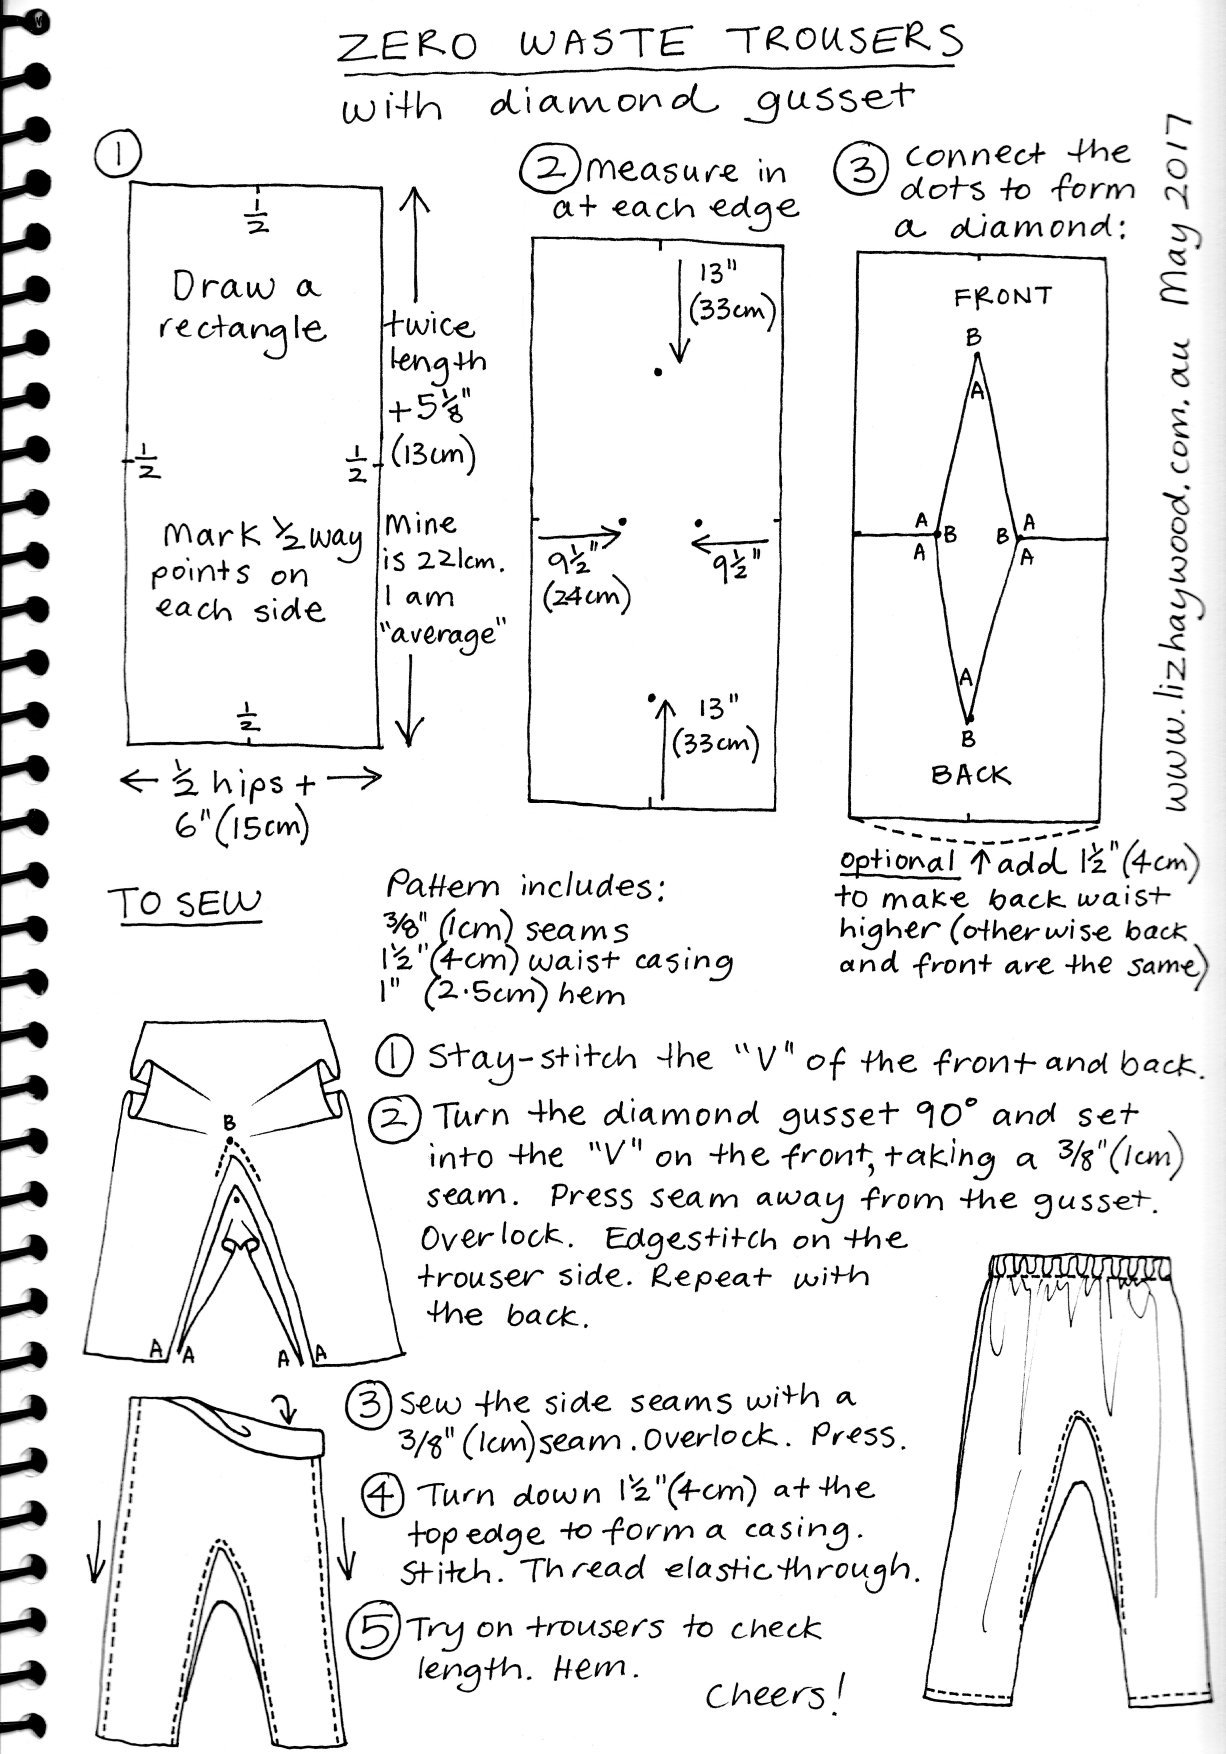 ZERO WASTE TROUSERS
with diamond gusset
①
1/2
Draw a
rectangle
1/2
1/2
Mark 1/2 way
points on
each side
1/2
twice
length
+ 5 1/8"
(13cm)
Mine
is 221cm.
I am
"average"
← 1/2 hips + →
6" (15cm)
② measure in
at each edge
13"
(33cm)
9 1/2"
(24cm)
9 1/2"
13"
(33cm)
③ connect the
dots to form
a diamond:
FRONT
B
A
A
B
B
A
A
A
A
B
BACK
optional ↑ add 1 1/2" (4cm)
to make back waist
higher (otherwise back
and front are the same)
www.lizhaywood.com.au May 2017
TO SEW
Pattern includes:
3/8" (1cm) seams
1 1/2" (4cm) waist casing
1" (2.5cm) hem
B
A
A
A
A
① Stay-stitch the "V" of the front and back.
② Turn the diamond gusset 90° and set
into the "V" on the front, taking a 3/8" (1cm)
seam. Press seam away from the gusset.
Overlock. Edgestitch on the
trouser side. Repeat with
the back.
③ Sew the side seams with a
3/8" (1cm) seam. Overlock. Press.
④ Turn down 1 1/2" (4cm) at the
top edge to form a casing.
Stitch. Thread elastic through.
⑤ Try on trousers to check
length. Hem.
Cheers!